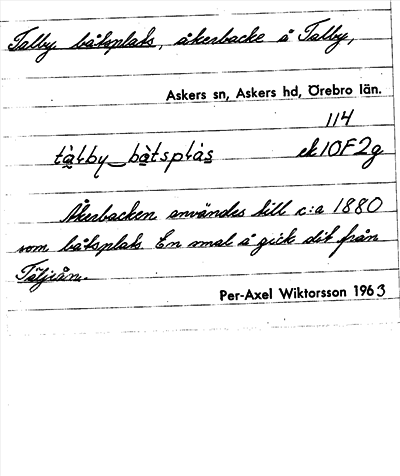 Talby båtsplats, åkerbacke å Talby,
Askers sn, Askers hd, Örebro län.
114
tàlby båtsplàs ek 10F2g
Åkerbacken användes till c:a 1880
som båtsplats. En smal å gick dit från
Täljeån.
Per-Axel Wiktorsson 1963